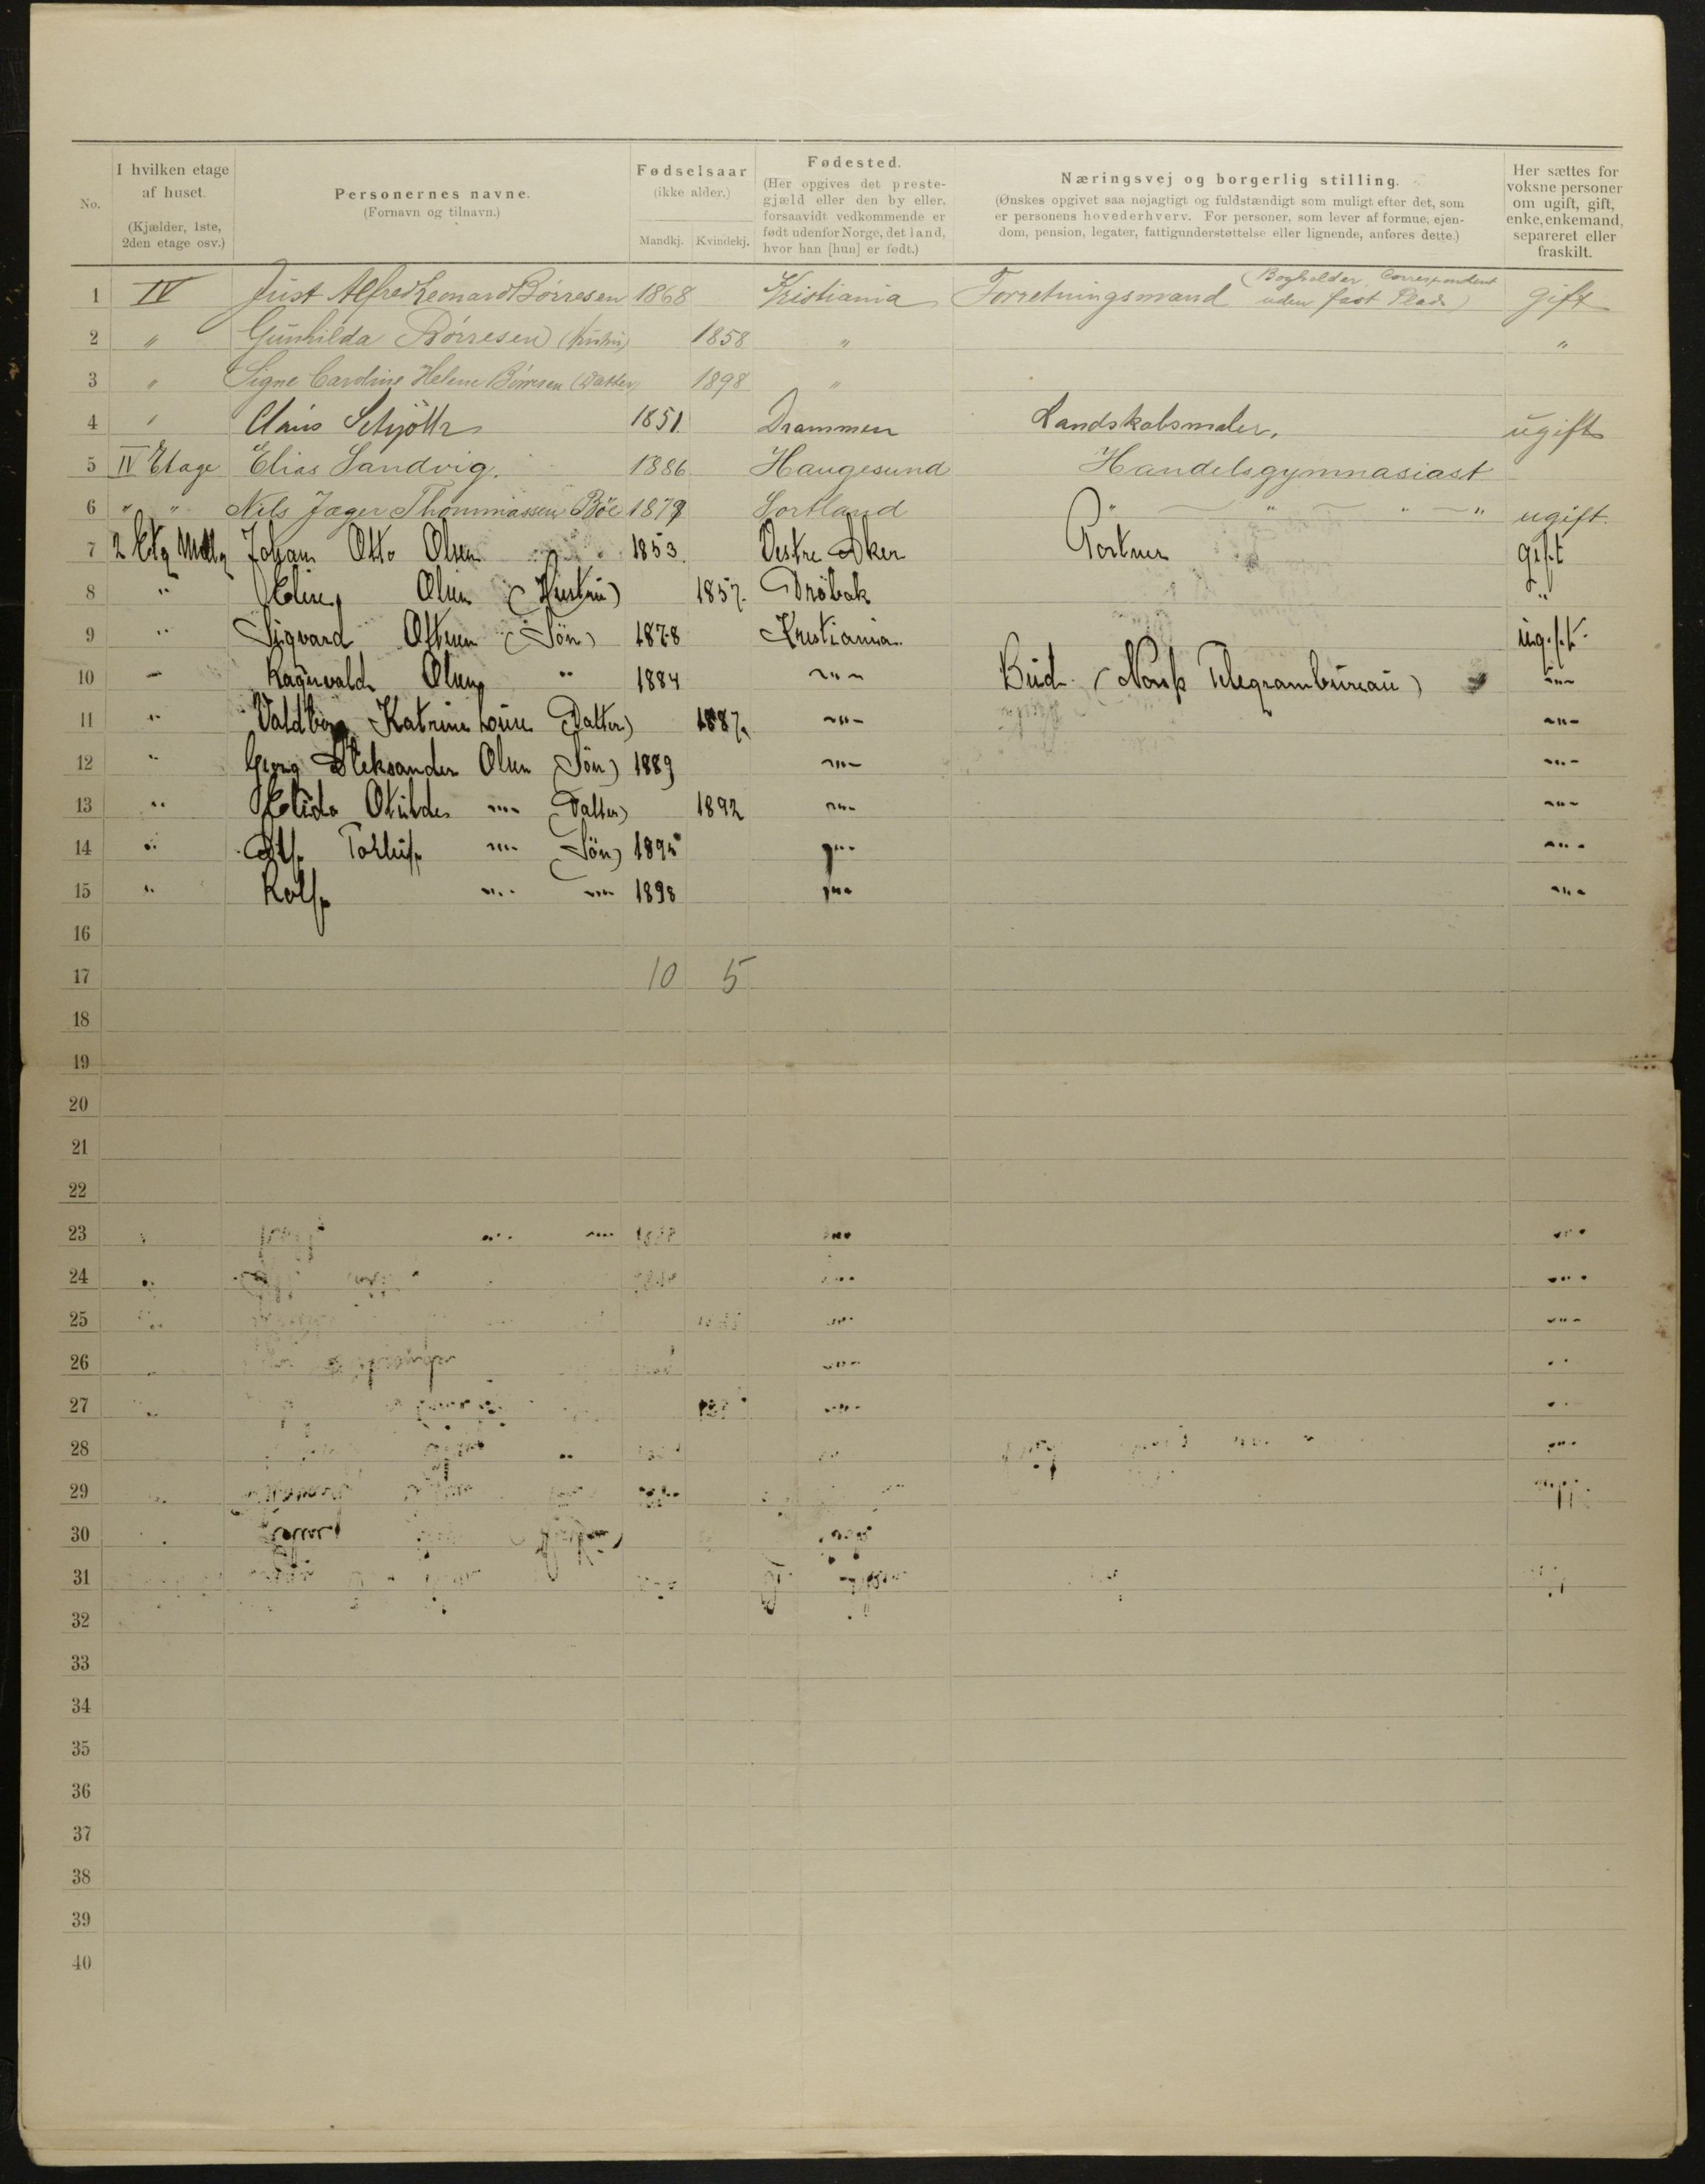 No.
I hvilken etage af huset. (Kjælder, 1ste, 2den etage osv.)
Personernes navne. (Fornavn og tilnavn.)
Fødselsaar (ikke alder.) Mandkj. Kvindekj.
Fødested. (Her opgives det prestegjæld eller den by eller, forsaavidt vedkommende er født udenfor Norge, det land, hvor han [hun] er født.)
Næringsvej og borgerlig stilling. (Ønskes opgivet saa nøjagtigt og fuldstændigt som muligt efter det, som er personens hovederhverv. For personer, som lever af formue, ejendom, pension, legater, fattigunderstøttelse eller lignende, anføres dette.)
Her sættes for voksne personer om ugift, gift, enke, enkemand, separeret eller fraskilt.
1 IV Just Alfred Leonard Börresen 1868 Kristiania Forretningsmand (Bogholder, Correspondent uden fast Plads) gift
2 " Gunhilda Börresen (Hustru) 1858 " "
3 " Signe Caroline Helene Börresen (Datter) 1898 "
4 " Claus Schjöttz 1851. Drammen Landskabsmaler. ugift
5 IV Etage Elias Sandvig. 1886 Haugesund Handelsgymnasiast
6 " " Nils Jæger Thommassen Böe 1879 Sortland " " " " ugift.
7 2 Etg Johan Otto Olsen 1853. Vestre Aker Portner gift
8 " Elise Olsen (Hustru) 1857. Dröbak "
9 " Sigvard Ottesen (Sön) 1878 Kristiania. ugift.
10 " Ragnvald Olsen " 1884 " Bud (Norsk Telegrambureau) "
11 " Valdborg Katrine Louise (Datter) 1887. " "
12 " Georg Aleksander Olsen (Sön) 1889 " "
13 " Elida Otilde " (Datter) 1892 " "
14 " Alf Torleif " (Sön) 1895 " "
15 " Rolf " " 1898 " "
16
17 10 5
18
19
20
21
22
23
24
25
26
27
28
29
30
31
32
33
34
35
36
37
38
39
40